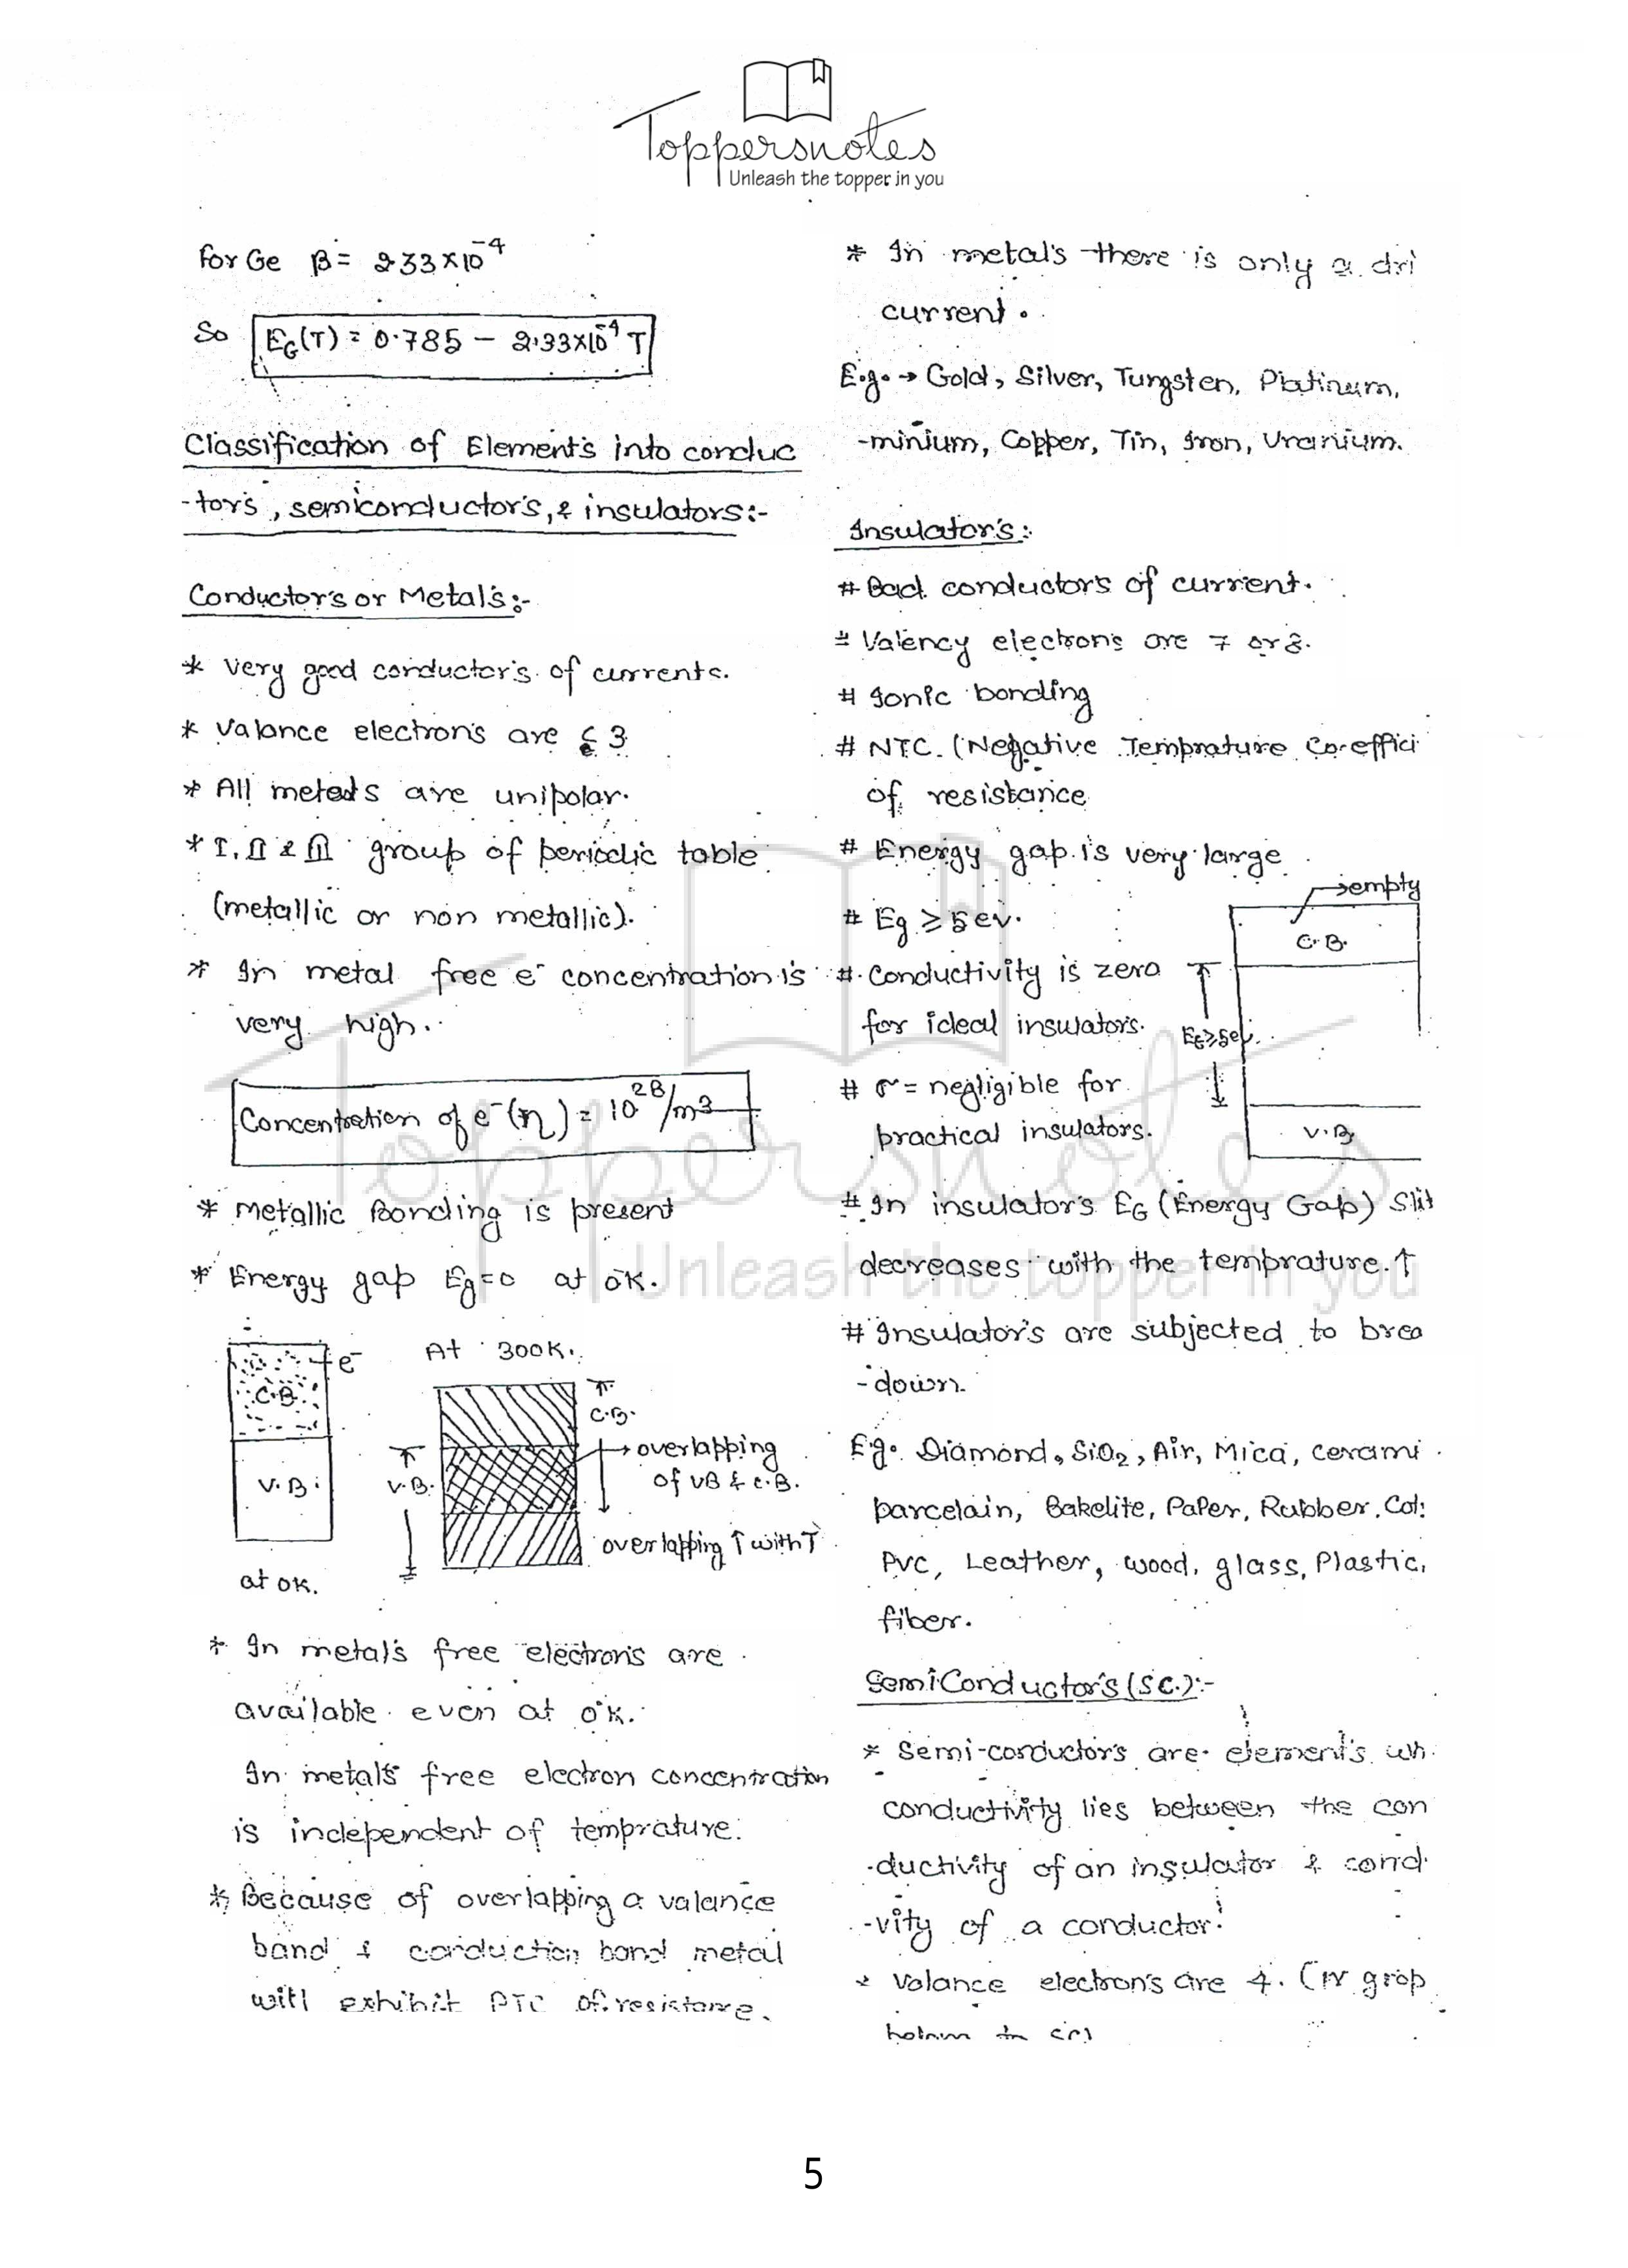 Toppersnotes
Unleash the topper in you
For Ge β = 2.33×10⁻⁴
So E_G(T) = 0.785 – 2.33×10⁻⁴ T
Classification of Elements into conduc
-tors, semiconductors, & insulators:-
Conductors or Metals:-
* Very good conductors of currents.
* Valance electrons are ≤ 3
* All metals are unipolar.
* I, II & III group of periodic table
(metallic or non metallic).
* In metal free e⁻ concentration is
very high.
Concentration of e⁻(η) = 10²⁸/m³
* Metallic Bonding is present
* Energy gap Eg=0 at 0K.
e⁻
C.B.
V.B.
at 0K.
At 300K.
C.B.
V.B.
→overlapping
of VB & C.B.
overlapping ↑ with T
* In metals free electrons are
available even at 0°K.
In metals free electron concentration
is independent of temprature.
* Because of overlapping a valance
band & conduction band metal
will exhibit PTC of resistance.
* In metals there is only a dri
current.
E.g. → Gold, Silver, Tungsten, Platinum,
-minium, Copper, Tin, Iron, Uranium.
Insulators:
# Bad conductors of current.
# Valency electrons are 7 or 8.
# Ionic bonding
# NTC. (Negative Temprature Co-effici
of resistance
# Energy gap is very large
# Eg ≥ 5 ev.
# Conductivity is zero
for ideal insulators.
# σ = negligible for
practical insulators.
→empty
C.B.
EG≥5ev.
V.B.
# In insulators EG (Energy Gap) Slit
decreases with the temprature.↑
# Insulators are subjected to brea
-down.
E.g. Diamond, SiO₂, Air, Mica, cerami
parcelain, Bakelite, Paper, Rubber, Cot
PVC, Leather, wood, glass, Plastic,
fiber.
SemiConductors (SC.):-
* Semi-conductors are elements wh
conductivity lies between the con
-ductivity of an insulator & cond
-vity of a conductor.
* Valance electrons are 4. (IV grop
5